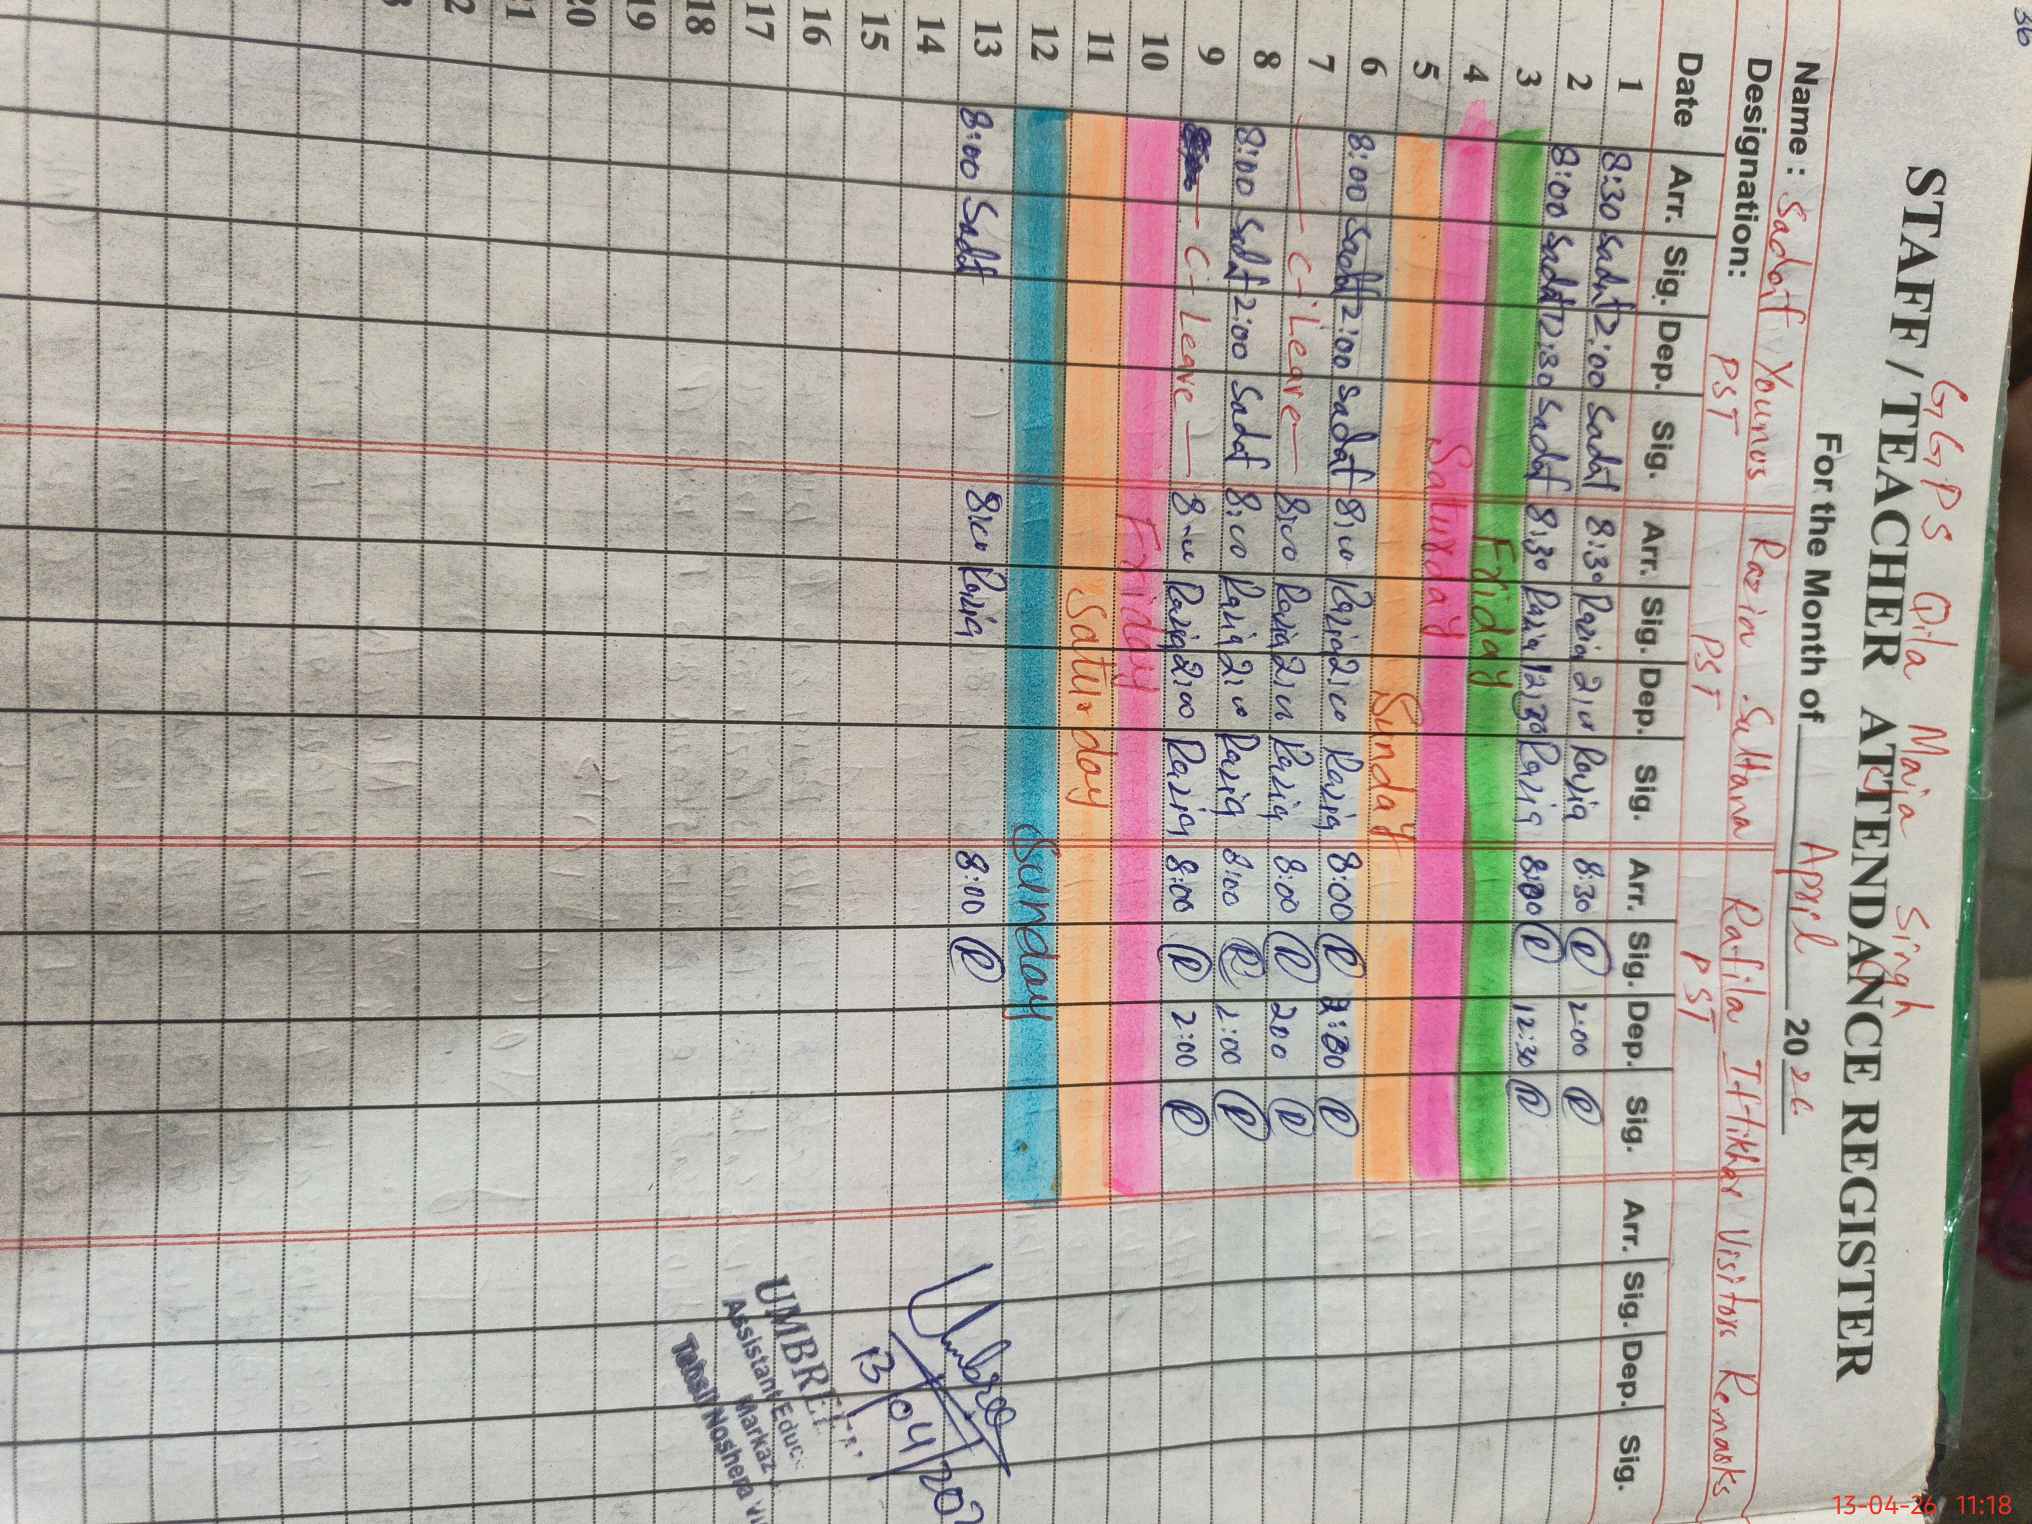 36
GGPS Qila Maja Singh
STAFF / TEACHER ATTENDANCE REGISTER
For the Month of April 2026
Name : Sadaf Younus Razia Sultana Rafila Iftikhar Visitors Remarks
Designation: PST PST PST
Date Arr. Sig. Dep. Sig. Arr. Sig. Dep. Sig. Arr. Sig. Dep. Sig. Arr. Sig. Dep. Sig.
1 8:30 Sadaf 2:00 Sadaf 8:30 Razia 2:00 Razia 8:30 R 2:00 R
2 8:00 Sadaf 12:30 Sadaf 8:30 Razia 12:30 Razia 8:00 R 12:30 R
3 Friday
4 Saturday
5 Sunday
6 8:00 Sadaf 2:00 Sadaf 8:00 Razia 2:00 Razia 8:00 R 2:00 R
7 C-Leave 8:00 Razia 2:00 Razia 8:00 R 200 R
8 8:00 Sadaf 2:00 Sadaf 8:00 Razia 2:00 Razia 8:00 R 2:00 R
9 C-Leave 8:00 Razia 2:00 Razia 8:00 R 2:00 R
10 Friday
11 Saturday
12 Sunday
13 8:00 Sadaf 8:00 Razia 8:00 R
14
15
16
17
18
19
20
13/04/202
UMBRE
Assistant Educ
Markaz
Tehsil Noshera Vi
13-04-26 11:18